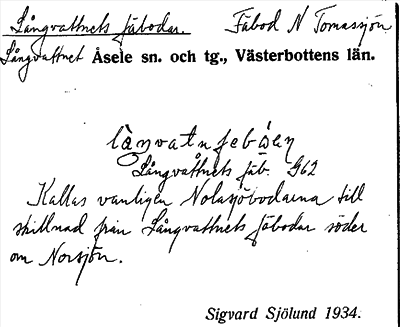 Långvattnets fäbodar. Fäbod N Tomassjön
Långvattnet Åsele sn. och tg., Västerbottens län.
Långvattnets fäb. G62
Kallas vanligen Nolasjöbodarna till
skillnad från Långvattnets fäbodar söder
om Norsjön.
Sigvard Sjölund 1934.